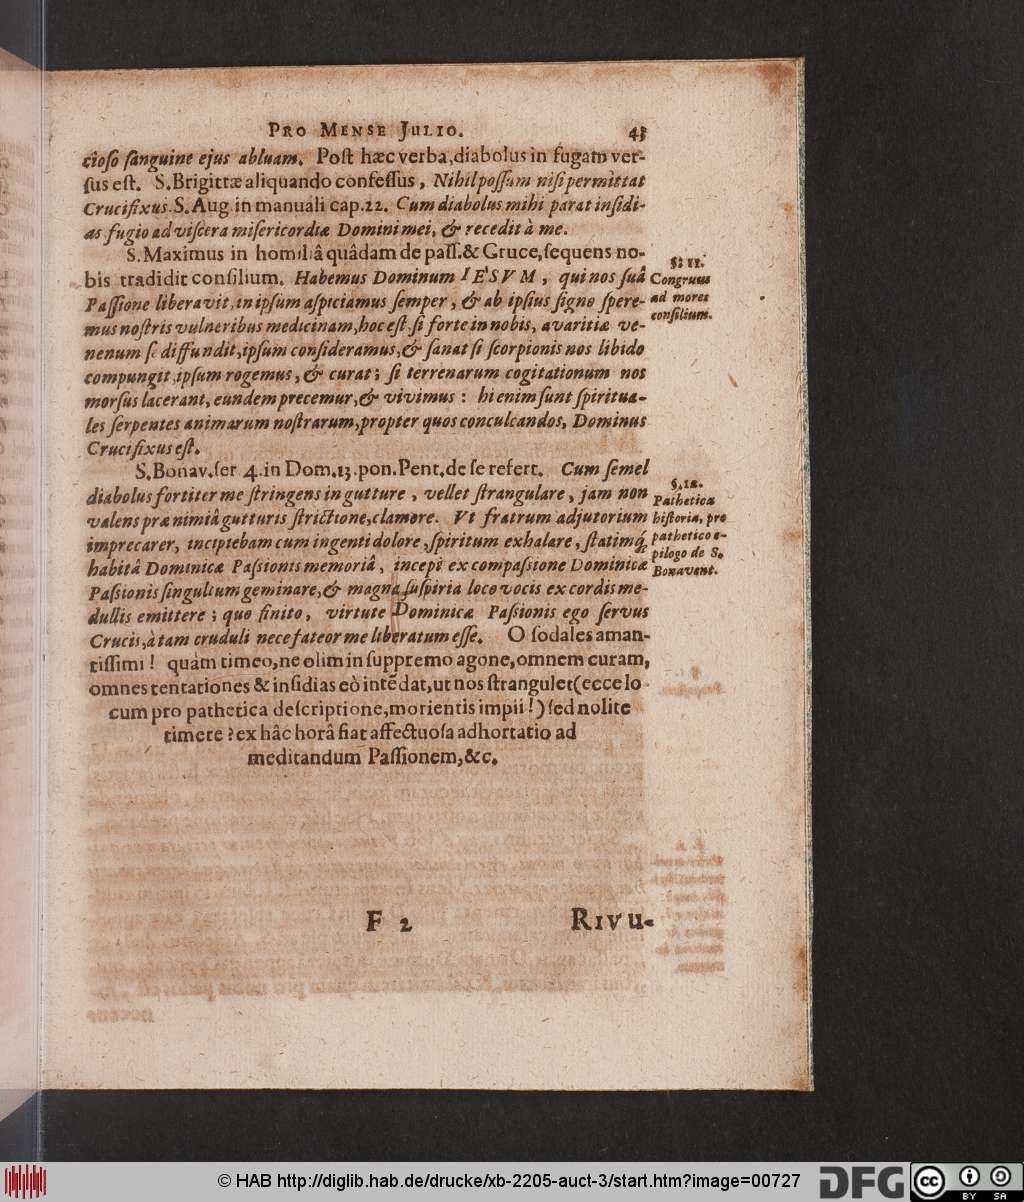 PRO MENSE JULIO. 43
cioſo ſanguine ejus abluam. Poſt hæc verba, diabolus in fugam ver-
ſus eſt. S. Brigittæ aliquando confeſſus, Nihil poſſum niſi permittat
Crucifixus. S. Aug. in manuali cap. 22. Cum diabolus mihi parat inſidi-
as, fugio ad viſcera miſericordiæ Domini mei, & recedit à me.
S. Maximus in homiliâ quâdam de paſſ. & Cruce, ſequens no-
bis tradidit conſilium. Habemus Dominum IESVM, qui nos ſuâ
Paſſione liberavit, in ipſum aſpiciamus ſemper, & ab ipſius ſigno ſpere-
mus noſtris vulneribus medicinam, hoc eſt, ſi forte in nobis, avaritiæ ve-
nenum ſe diffundit, ipſum conſideramus, & ſanat ſi ſcorpionis nos libido
compungit, ipſum rogemus, & curat; ſi terrenarum cogitationum nos
morſus lacerant, eundem precemur, & vivimus: hi enim ſunt ſpiritua-
les ſerpentes animarum noſtrarum, propter quos conculcandos, Dominus
Crucifixus eſt.
§. 11.
Congruus
ad mores
conſilium.
S. Bonav. ſer 4. in Dom. 13. pon. Pent. de ſe refert. Cum ſemel
diabolus fortiter me ſtringens in gutture, vellet ſtrangulare, jam non
valens præ nimiâ gutturis ſtrictione, clamore. Vt fratrum adjutorium
imprecarer, incipiebam cum ingenti dolore, ſpiritum exhalare, ſtatimq́;
habitâ Dominicæ Paſsionis memoriâ, incepi ex compaſsione Dominicæ
Paſsionis ſingultum geminare, & magna ſuſpiria loco vocis ex cordis me-
dullis emittere; quo finito, virtute Dominicæ Paſsionis ego ſervus
Crucis, à tam cruduli nece fateor me liberatum eſſe. O ſodales aman-
tiſſimi! quàm timeo, ne olim in ſuppremo agone, omnem curam,
omnes tentationes & inſidias eò intẽdat, ut nos ſtrangulet (ecce lo
cum pro pathetica deſcriptione, morientis impii!) ſed nolite
timere? ex hâc horâ fiat affectuoſa adhortatio ad
meditandum Paſſionem, &c.
§. 12.
Pathetica
hiſtoria, pro
pathetico e-
pilogo de S.
Bonavent.
F 2 RIVU-
© HAB http://diglib.hab.de/drucke/xb-2205-auct-3/start.htm?image=00727
DFG
cc BY SA